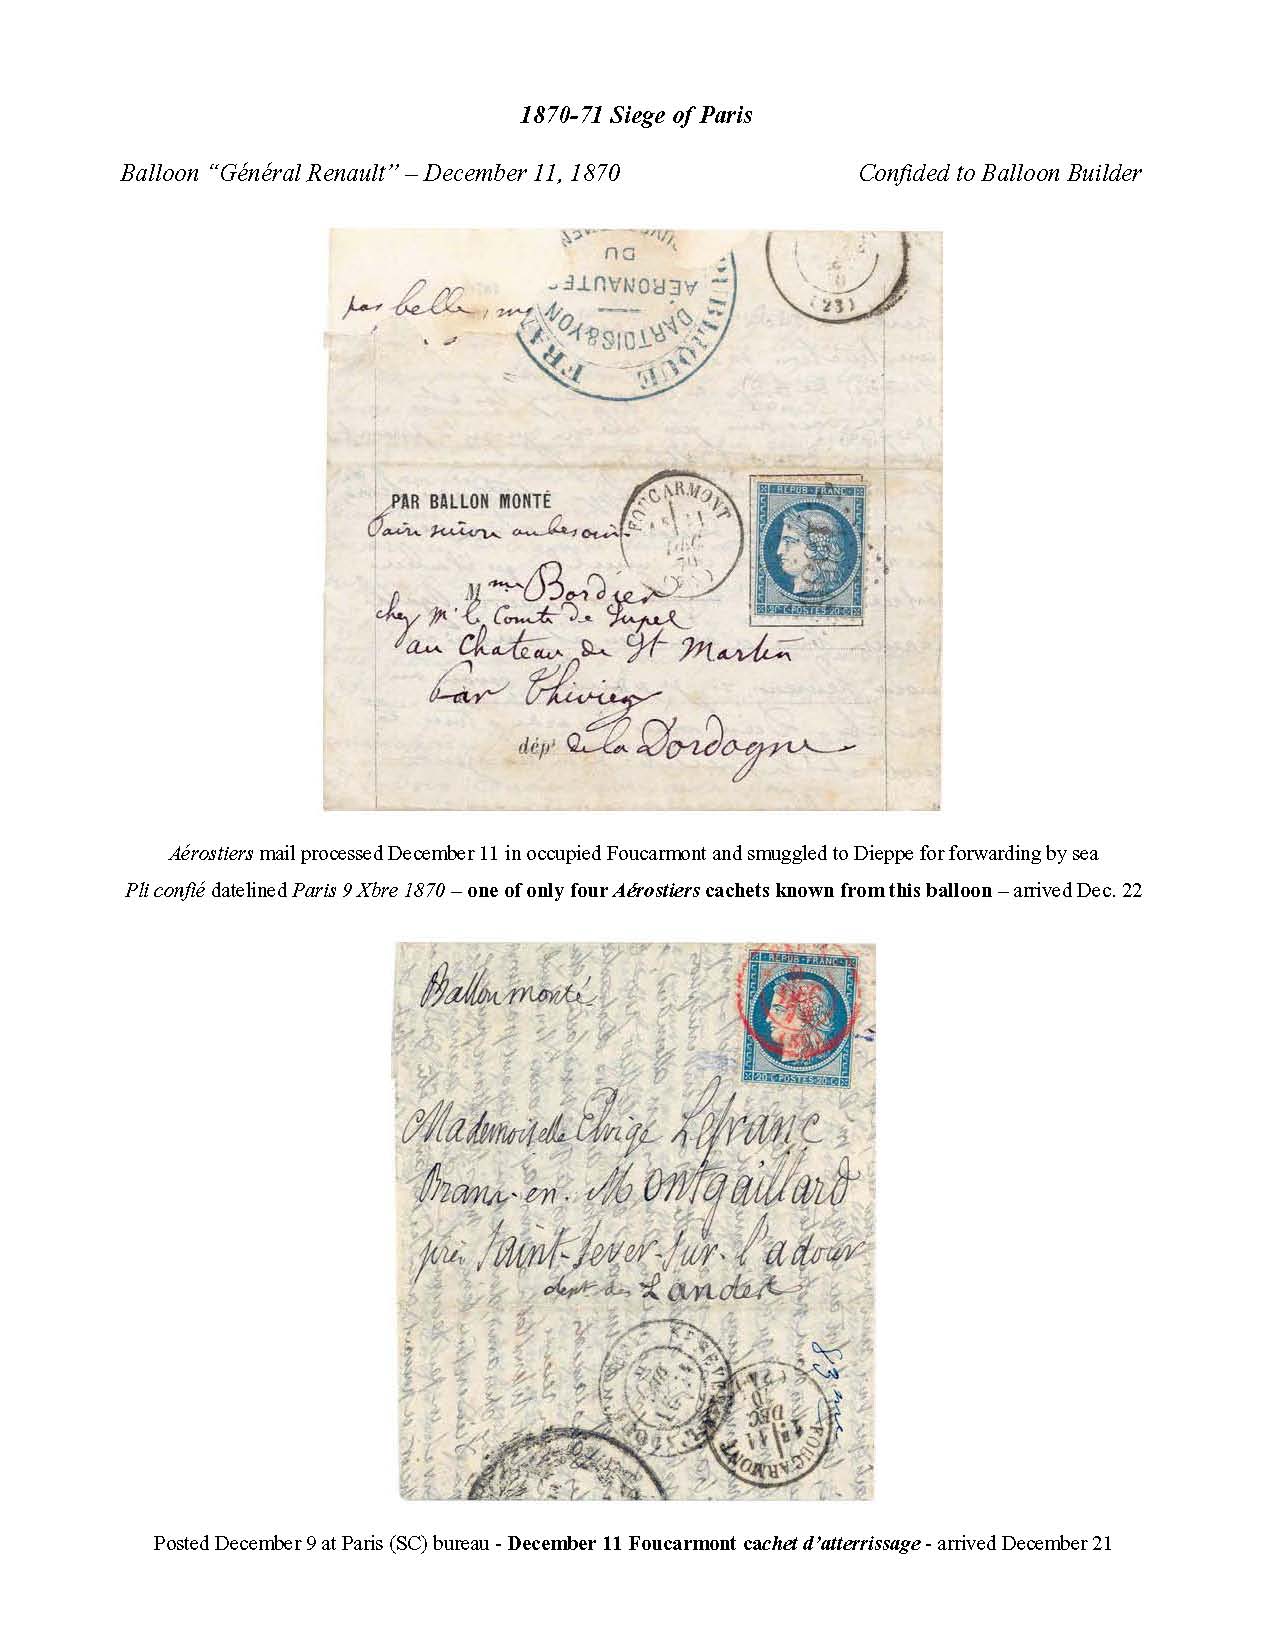 1870-71 Siege of Paris
Balloon “Général Renault” – December 11, 1870
Confided to Balloon Builder
DU
AÉRONAUTES
DARTOIS & YON
FRAN
UBLIQUE
pas belle, m
(23)
PAR BALLON MONTÉ
Faire suivre au besoin
FOUCARMONT
DEC
70
REPUB · FRANC
20 · C · POSTES · 20 · C
Mme Bordier
chez Mr le Comte de Lupel
au Chateau de St Martin
Par Thiviez
dépt de la Dordogne
Aérostiers mail processed December 11 in occupied Foucarmont and smuggled to Dieppe for forwarding by sea
Pli confié datelined Paris 9 Xbre 1870 – one of only four Aérostiers cachets known from this balloon – arrived Dec. 22
Ballon monté
REPUB · FRANC
20 · C · POSTES · 20 · C
Mademoiselle Elvige Lefranc
en Montgaillard
près Saint-Sever-sur-l'adour
dept des Landes
ST SEVER
FOUCARMONT
11
DEC
70
Posted December 9 at Paris (SC) bureau - December 11 Foucarmont cachet d’atterrissage - arrived December 21